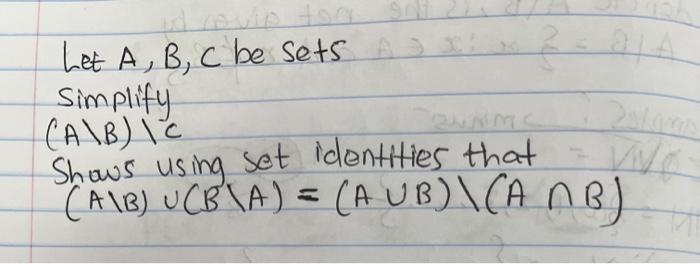 Let A, B, C be sets
Simplify
(A\B)\C
Shows using set identities that
(A\B) ∪ (B\A) = (A ∪ B)\(A ∩ B)